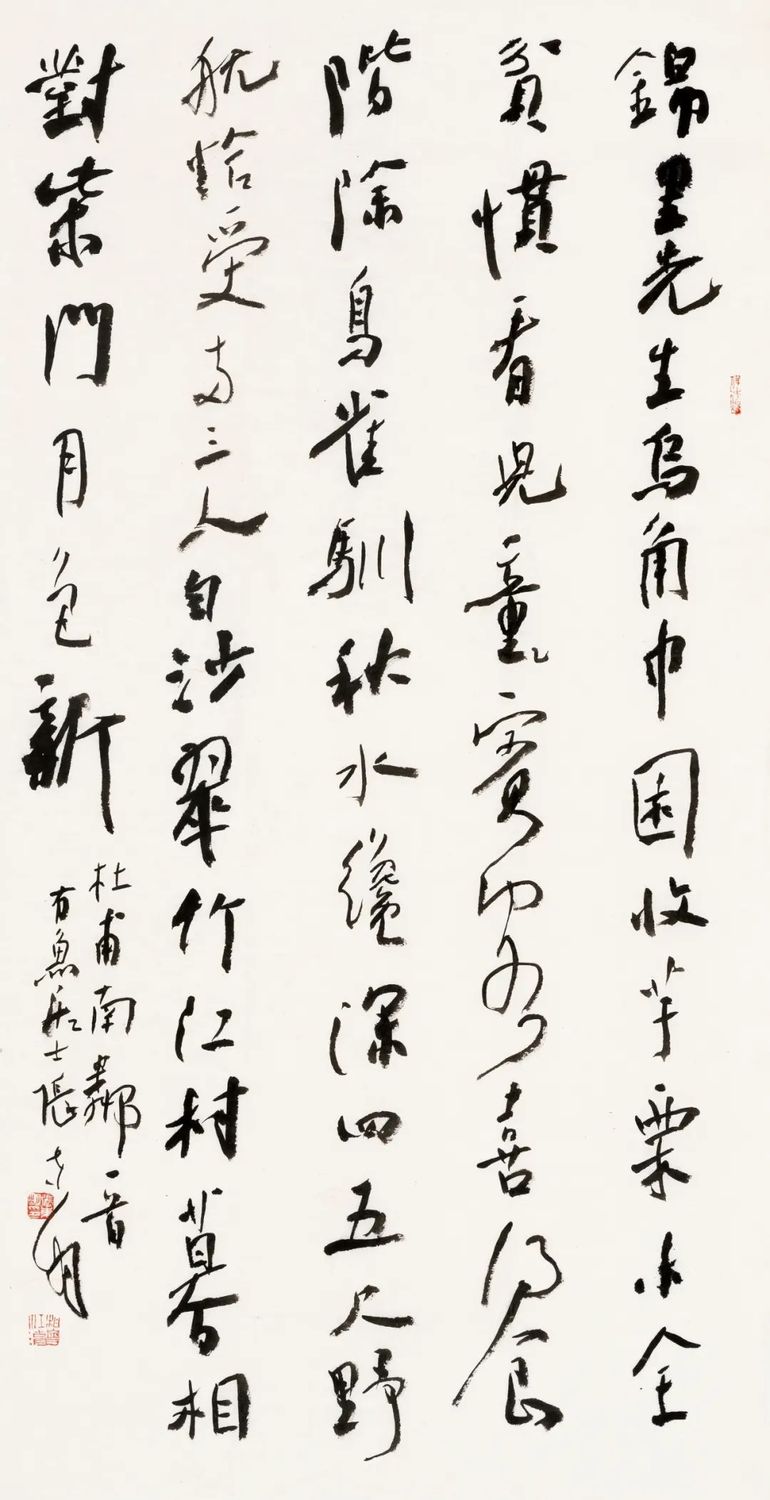 錦里先生烏角巾園收芋栗未全
貧慣看兒童賓客喜得食
階除鳥雀馴秋水纔深四五尺野
航恰受兩三人白沙翠竹江村暮相
對柴門月色新
杜甫南鄰一首
有魚居士張